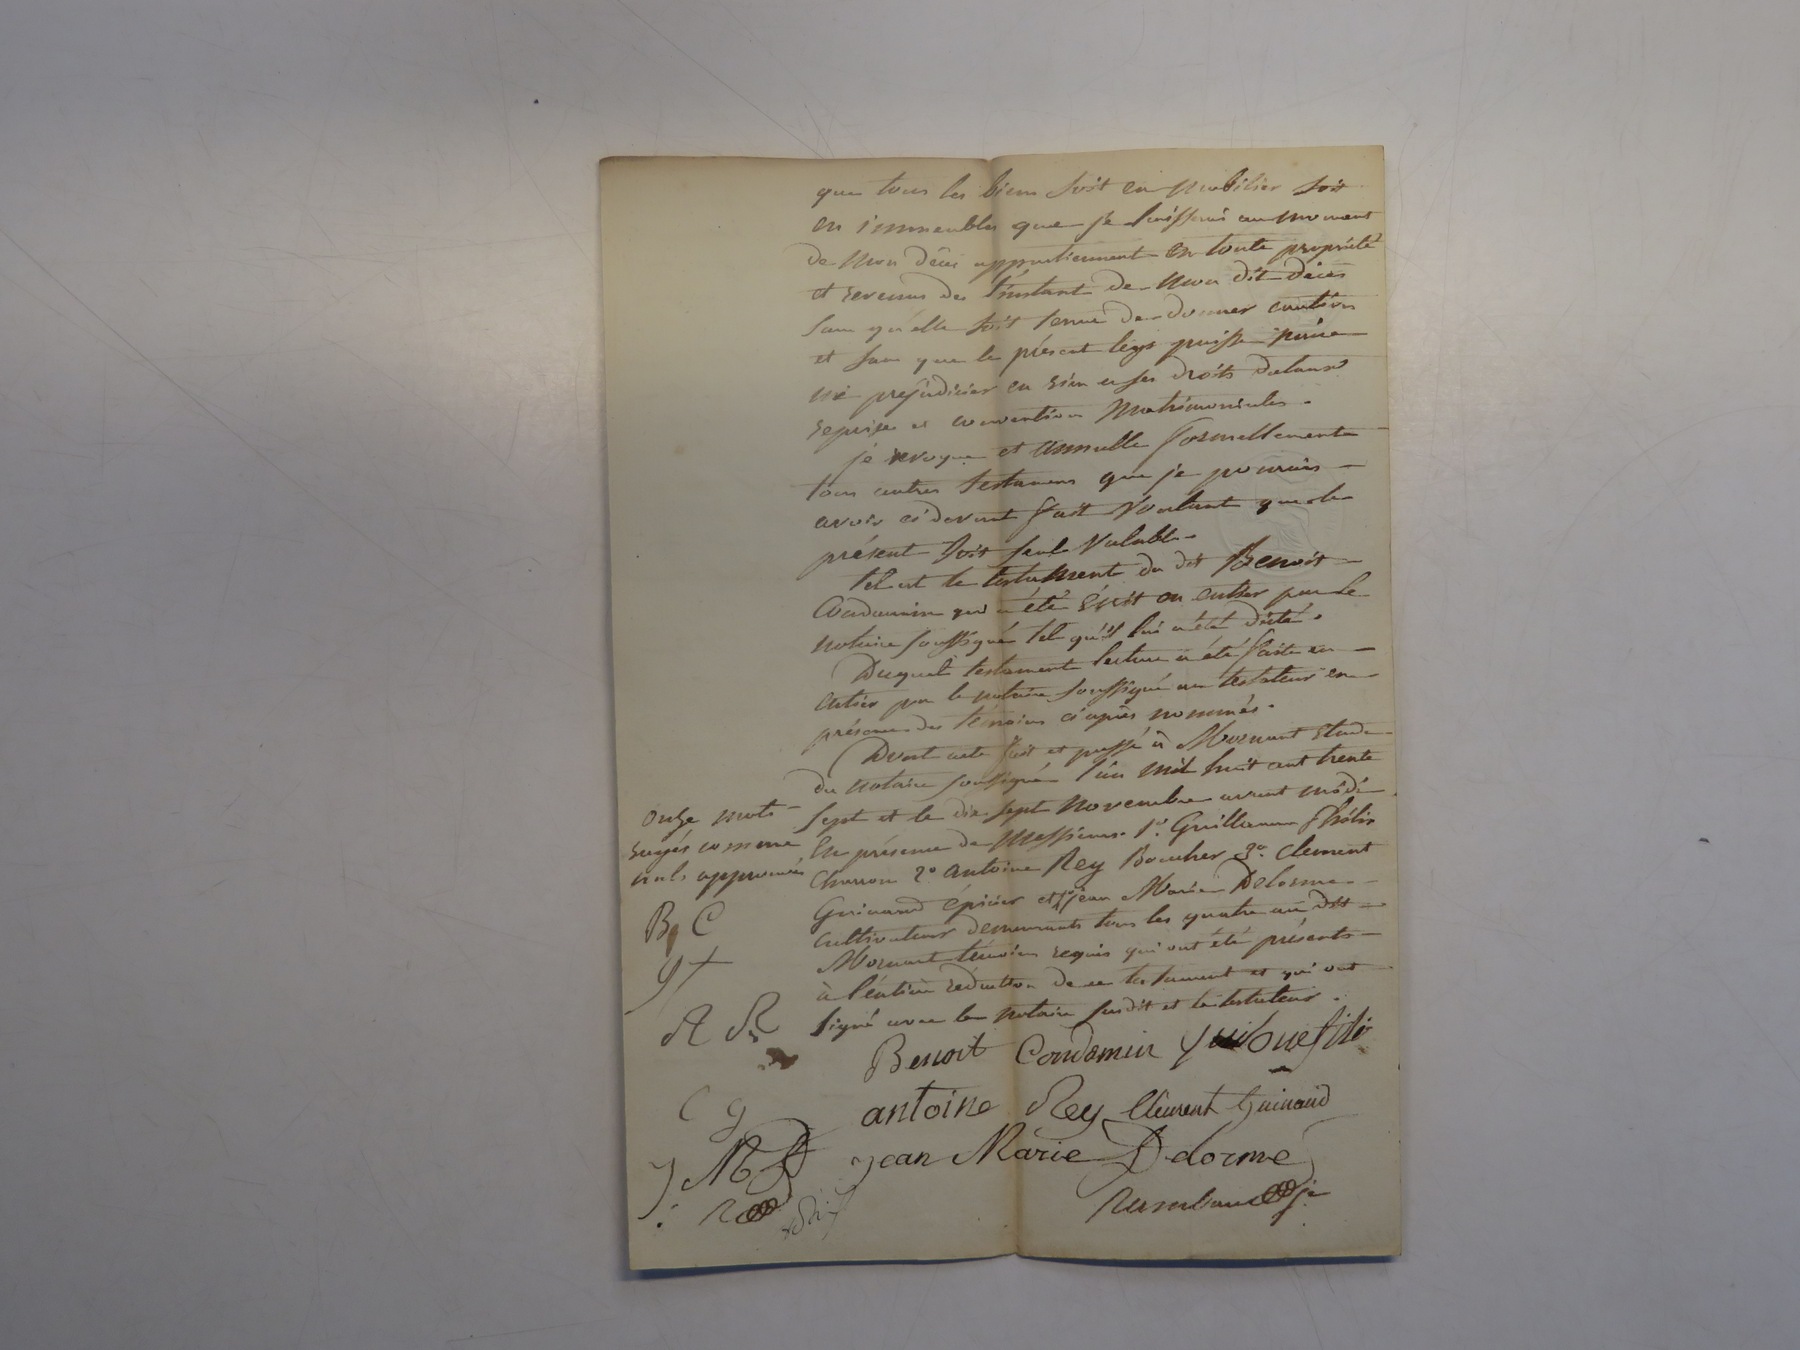 que tous les biens soit en mobilier soit
en immeubles que je laisserai au moment
de mon décès appartiennent en toute propriété
et revenus dès l'instant de mon dit décès
sans qu'elle soit tenue de donner caution
et sans que le présent légs puisse nuire
ni préjudicier en rien a ses droits
reprises et conventions matrimoniales.
je revoque et annulle formellement
tous autres testamens que je pourrais
avoir ci devant fait voulant que le
présent soit seul valable.
Tel est le testament du dit Benoit
Condamin qui a été écrit en entier par le
notaire soussigné tel qu'il lui a été dicté.
Duquel testament lecture a été faite en
entier par le notaire soussigné au testateur en
présence des témoins ci après nommés.
Dont acte fait et passé à Mornant Etude
du notaire soussigné l'an mil huit cent trente
sept et le dix sept novembre avant midi
En présence de Messieurs 1o. Guillaume
Charron 2o antoine Rey Boucher 3o. Clement
Guinand épicier et 4o jean Marie Delorme
cultivateur demeurants tous les quatre au dit
Mornant témoins requis qui ont été présents
à l'entière rédaction de ce testament et qui ont
signé avec le notaire susdit et le testateur.
onze mots
rayés comme
nuls approuvés
B C
A R
C g
J M D
Benoit Condamin
antoine Rey Clement Guinand
jean Marie Delorme